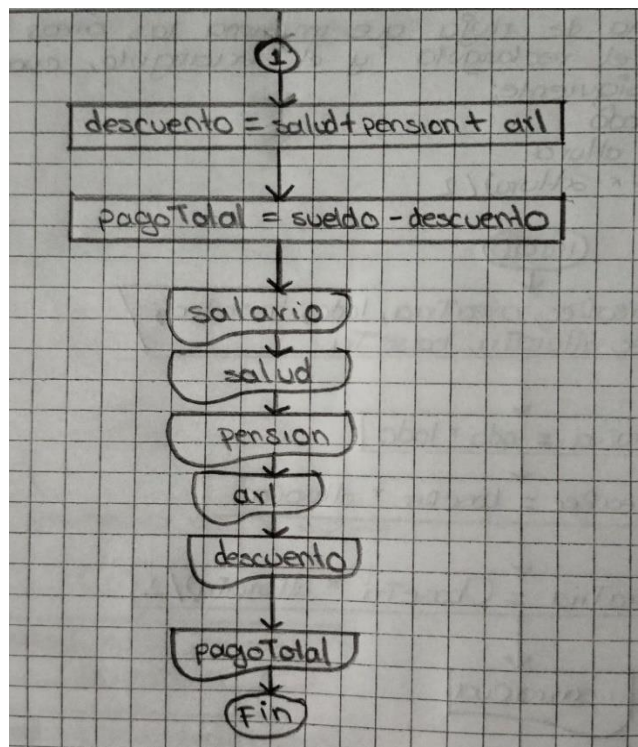 1
descuento = salud + pension + arl
pagoTotal = sueldo - descuento
salario
salud
pension
arl
descuento
pagoTotal
Fin